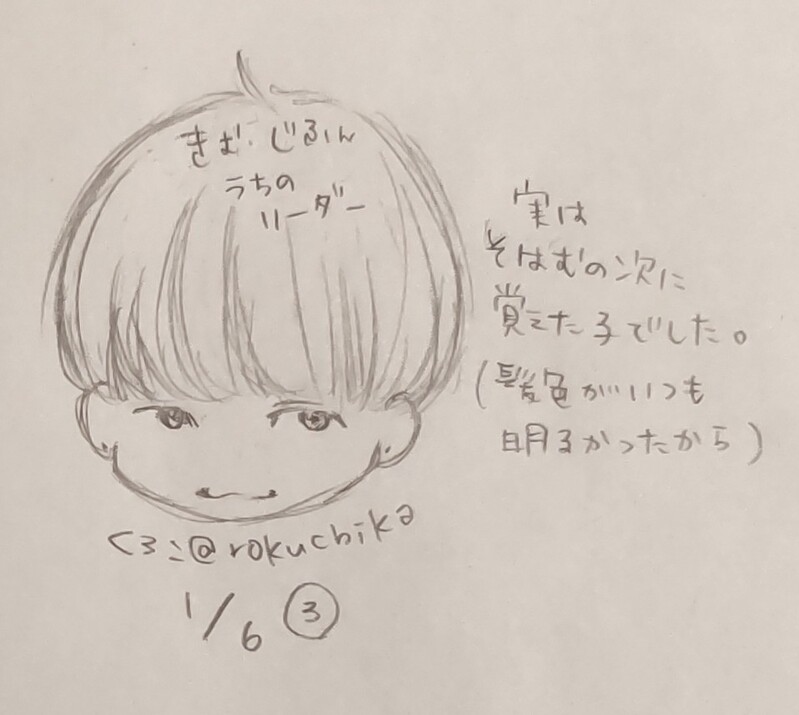 きむ・じるん
うちの
リーダー
実は
そはむの次に
覚えた子でした。
(髪色がいつも
明るかったから)
くろこ@rokuchika
1/6 ③